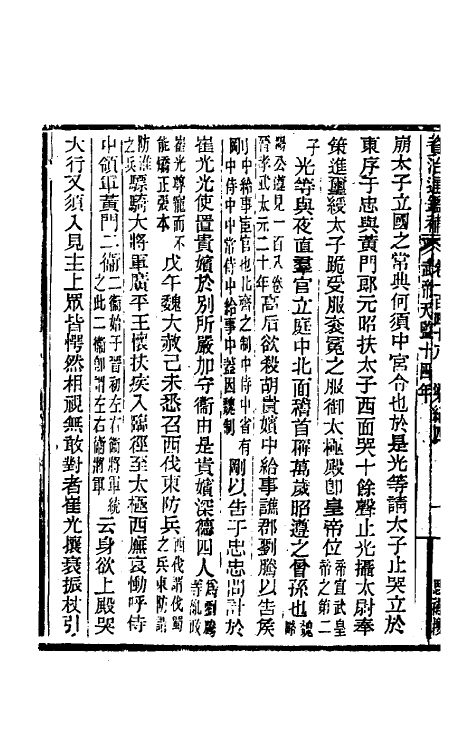 資治通鑑補 卷一百四十八 武帝天監十四年 梁紀四 一
崩太子立國之常典何須中宮令也於是光等請太子止哭立於
東序于忠與黃門郎元昭扶太子西面哭十餘聲止光攝太尉奉
策進璽綬太子跪受服袞冕之服御太極殿卽皇帝位 帝宣武皇帝之第二
子 光等與夜直羣官立庭中北面稽首稱萬歲昭遵之曾孫也 魏
公遵見一百八卷晉孝武太元二十年 高后欲殺胡貴嬪中給事譙郡劉騰以告侯
剛 中給事宦官也北齊之制中侍中省有中侍中中常侍中給事中蓋因魏制 剛以告于忠忠問計於
崔光光使置貴嬪於別所嚴加守衞由是貴嬪深德四人 爲劉騰等亂政
崔光尊寵而不能矯正張本 戊午魏大赦己未悉召西伐東防兵 西伐謂伐蜀之兵東防謂
防淮之兵 驃騎大將軍廣平王懷扶疾入臨徑至太極西廡哀慟呼侍
中領軍黃門二衞 二衞始于晉初左右衞將軍統之此二衞卽謂左右衞將軍 云身欲上殿哭
大行又須入見主上眾皆愕然相視無敢對者崔光攘衰振杖引